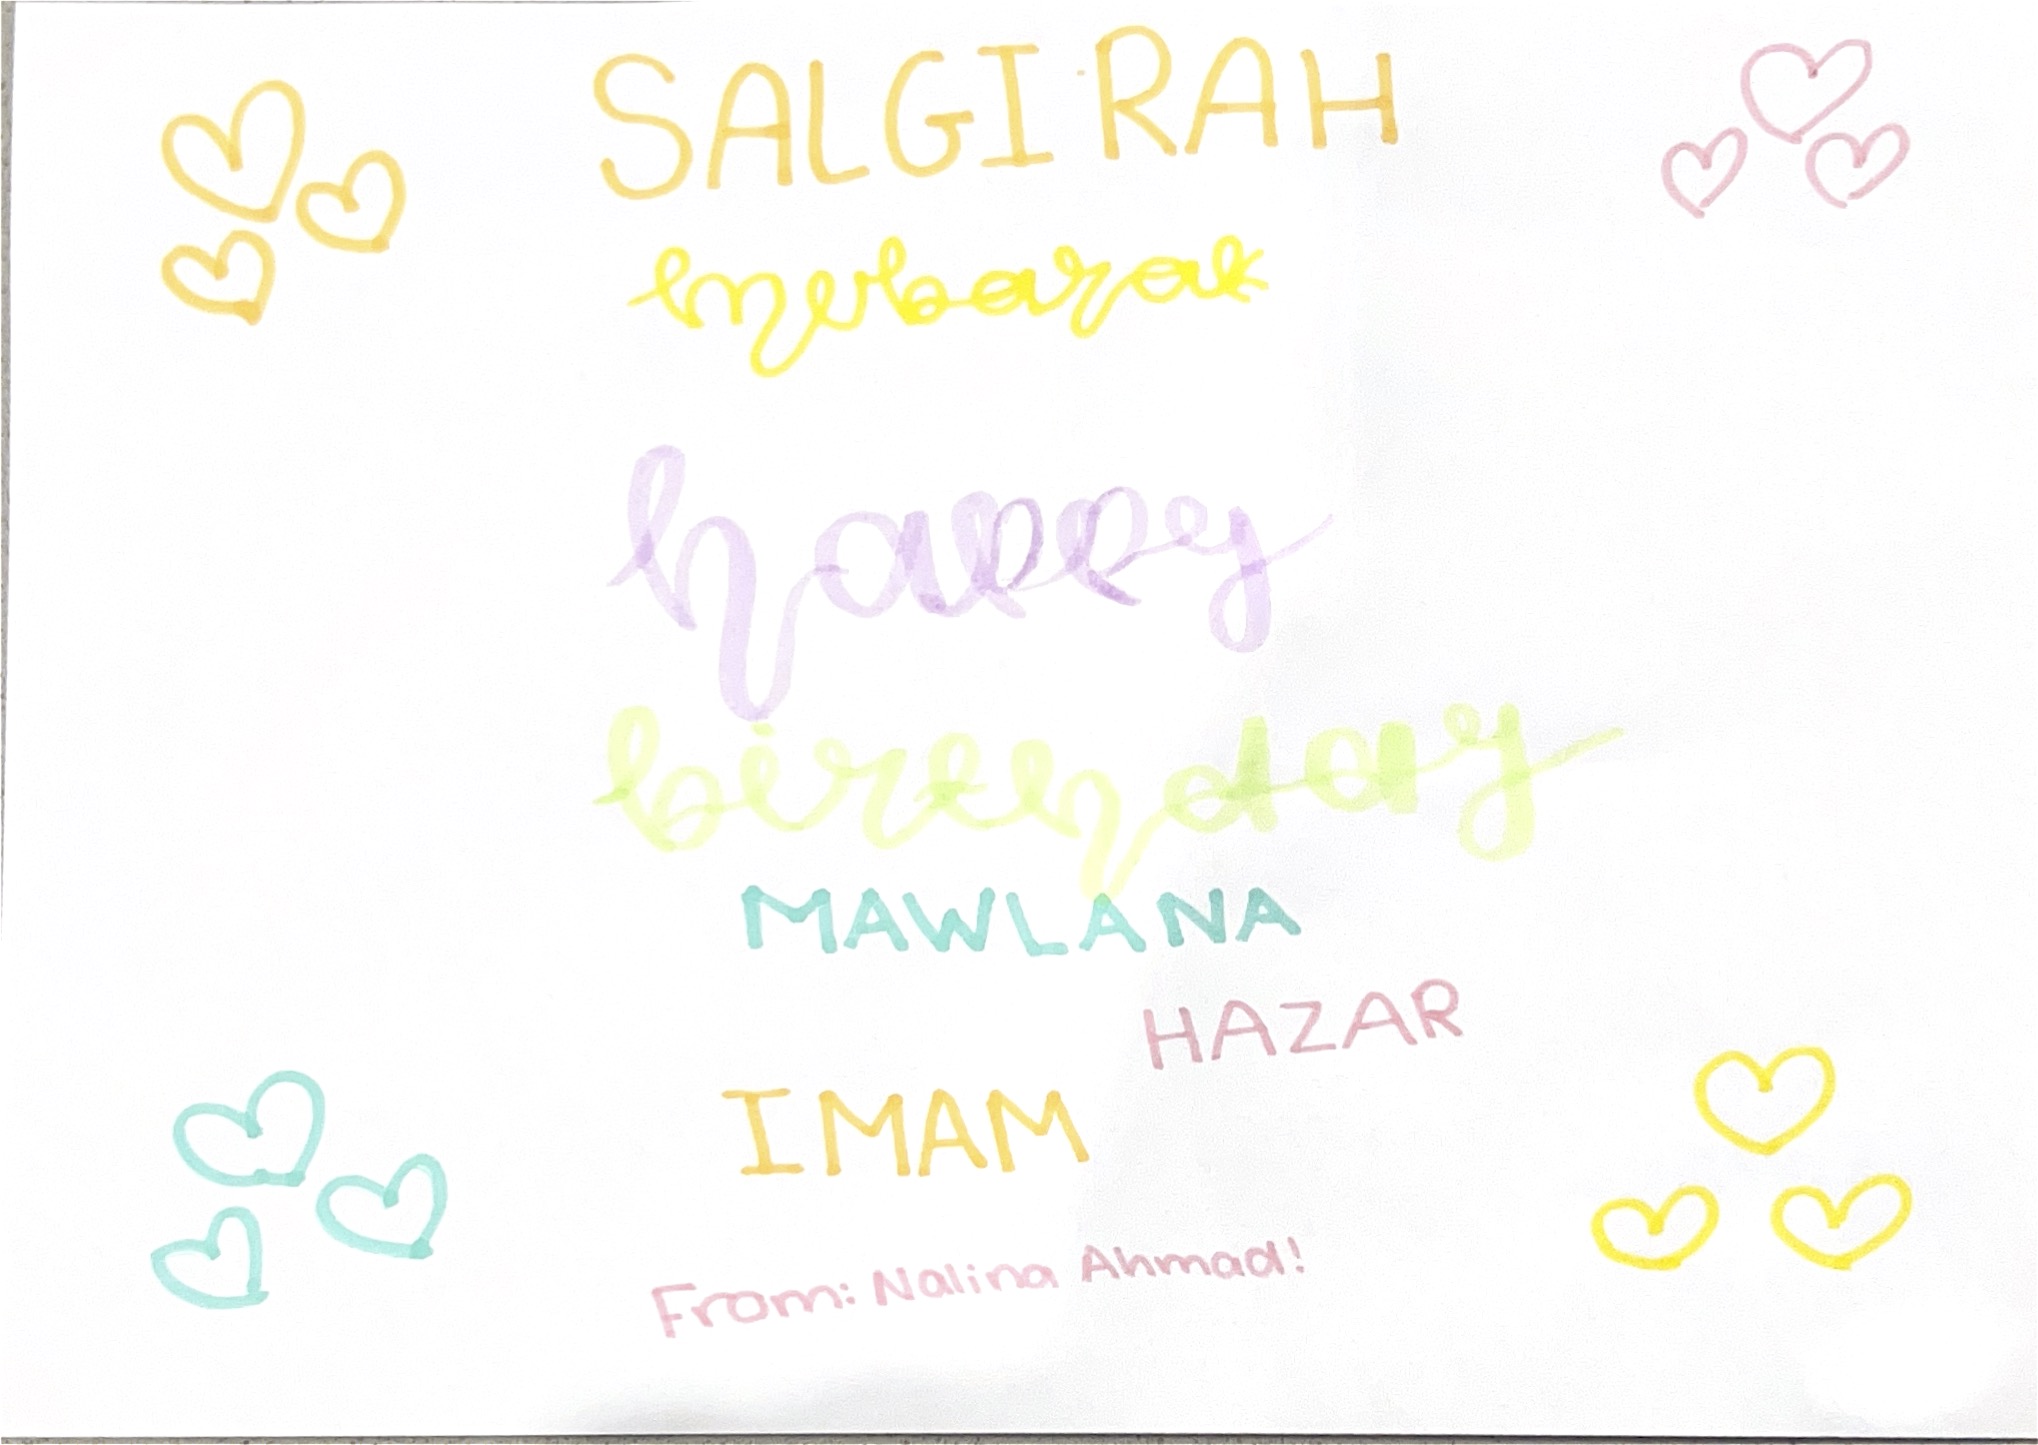 SALGIRAH
mubarak
happy
birthday
MAWLANA
HAZAR
IMAM
From: Nalina Ahmad!